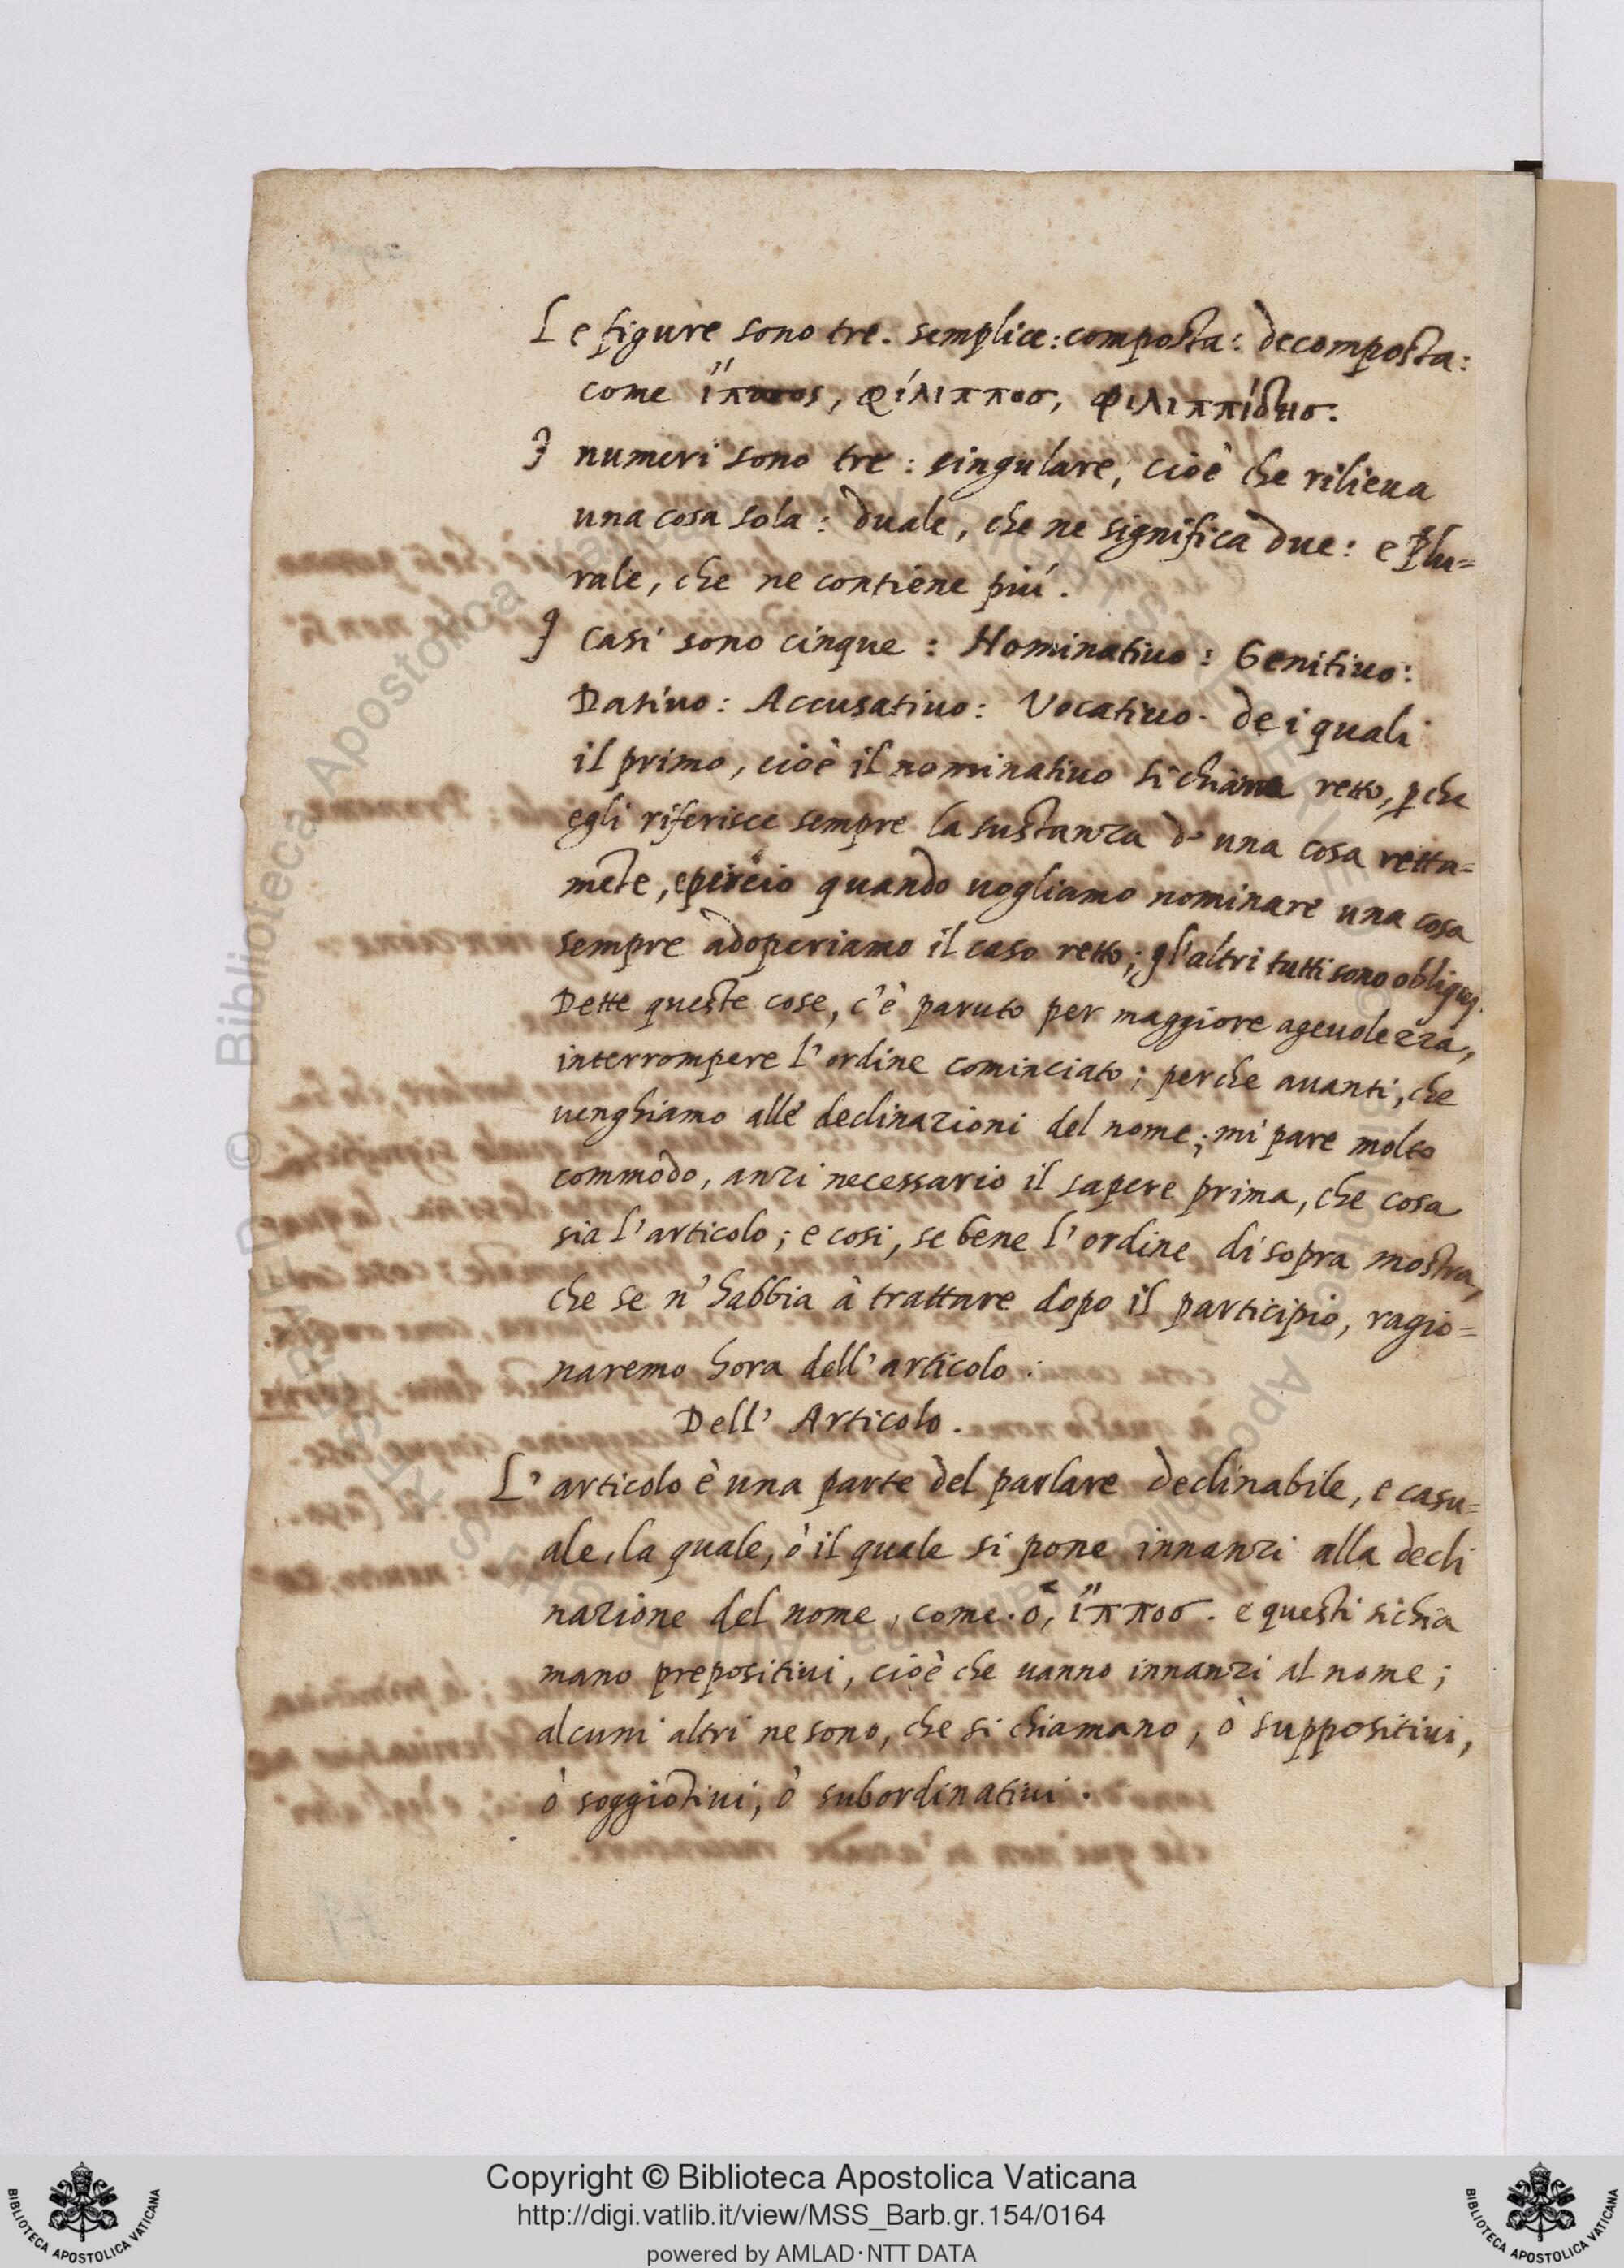 Le figure sono tre. semplice: composta: decomposta:
come ἵππος, φίλιπποσ, φιλιππίδησ.
I numeri sono tre: singulare, cioè che rilieua
una cosa sola: duale, che ne significa due: e plu=
rale, che ne contiene piú.
I casi sono cinque: Nominatiuo: Genitiuo:
Datiuo: Accusatiuo: Vocatiuo. de i quali
il primo, cioè il nominatiuo si chiama retto, pche
egli riferisce sempre la sustanza d' una cosa retta=
mẽte, e perciò quando uogliamo nominare una cosa
sempre adoperiamo il caso retto; gl'altri tutti sono obliqui.
Dette queste cose, c'è paruto per maggiore ageuolezza,
interrompere l'ordine cominciato; perche auanti, che
uenghiamo alle declinazioni del nome; mi pare molto
commodo, anzi necessario il sapere prima, che cosa
sia l'articolo; e cosi, se bene l'ordine di sopra mostra,
che se n'habbia à trattare dopo il participio, ragio=
naremo hora dell'articolo.
Dell' Articolo.
L'articolo è una parte del parlare declinabile, e casu=
ale, la quale, ò il quale si pone innanzi alla decli
nazione del nome, come. ὁ, ἵπποσ. e questi si chia
mano prepositiui, cioè che uanno innanzi al nome;
alcuni altri ne sono, che si chiamano, ò suppositiui,
ò soggiõtiui, ò subordinatiui.
© Biblioteca Apostolica Vaticana
Copyright © Biblioteca Apostolica Vaticana
http://digi.vatlib.it/view/MSS_Barb.gr.154/0164
powered by AMLAD·NTT DATA
BIBLIOTECA APOSTOLICA VATICANA
BIBLIOTECA APOSTOLICA VATICANA